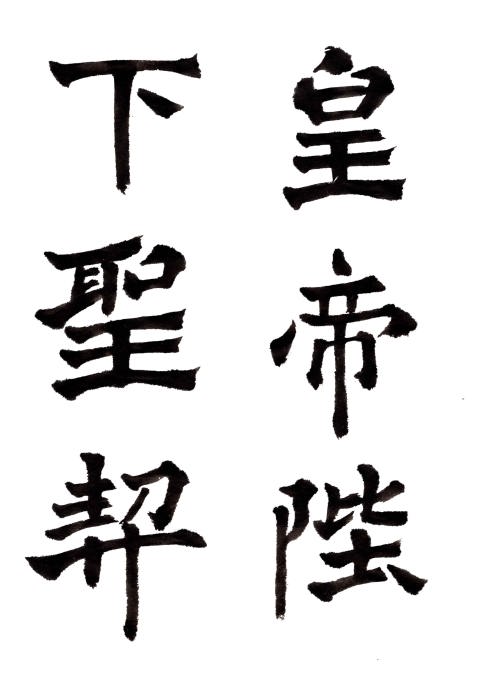 皇帝陛
下聖契